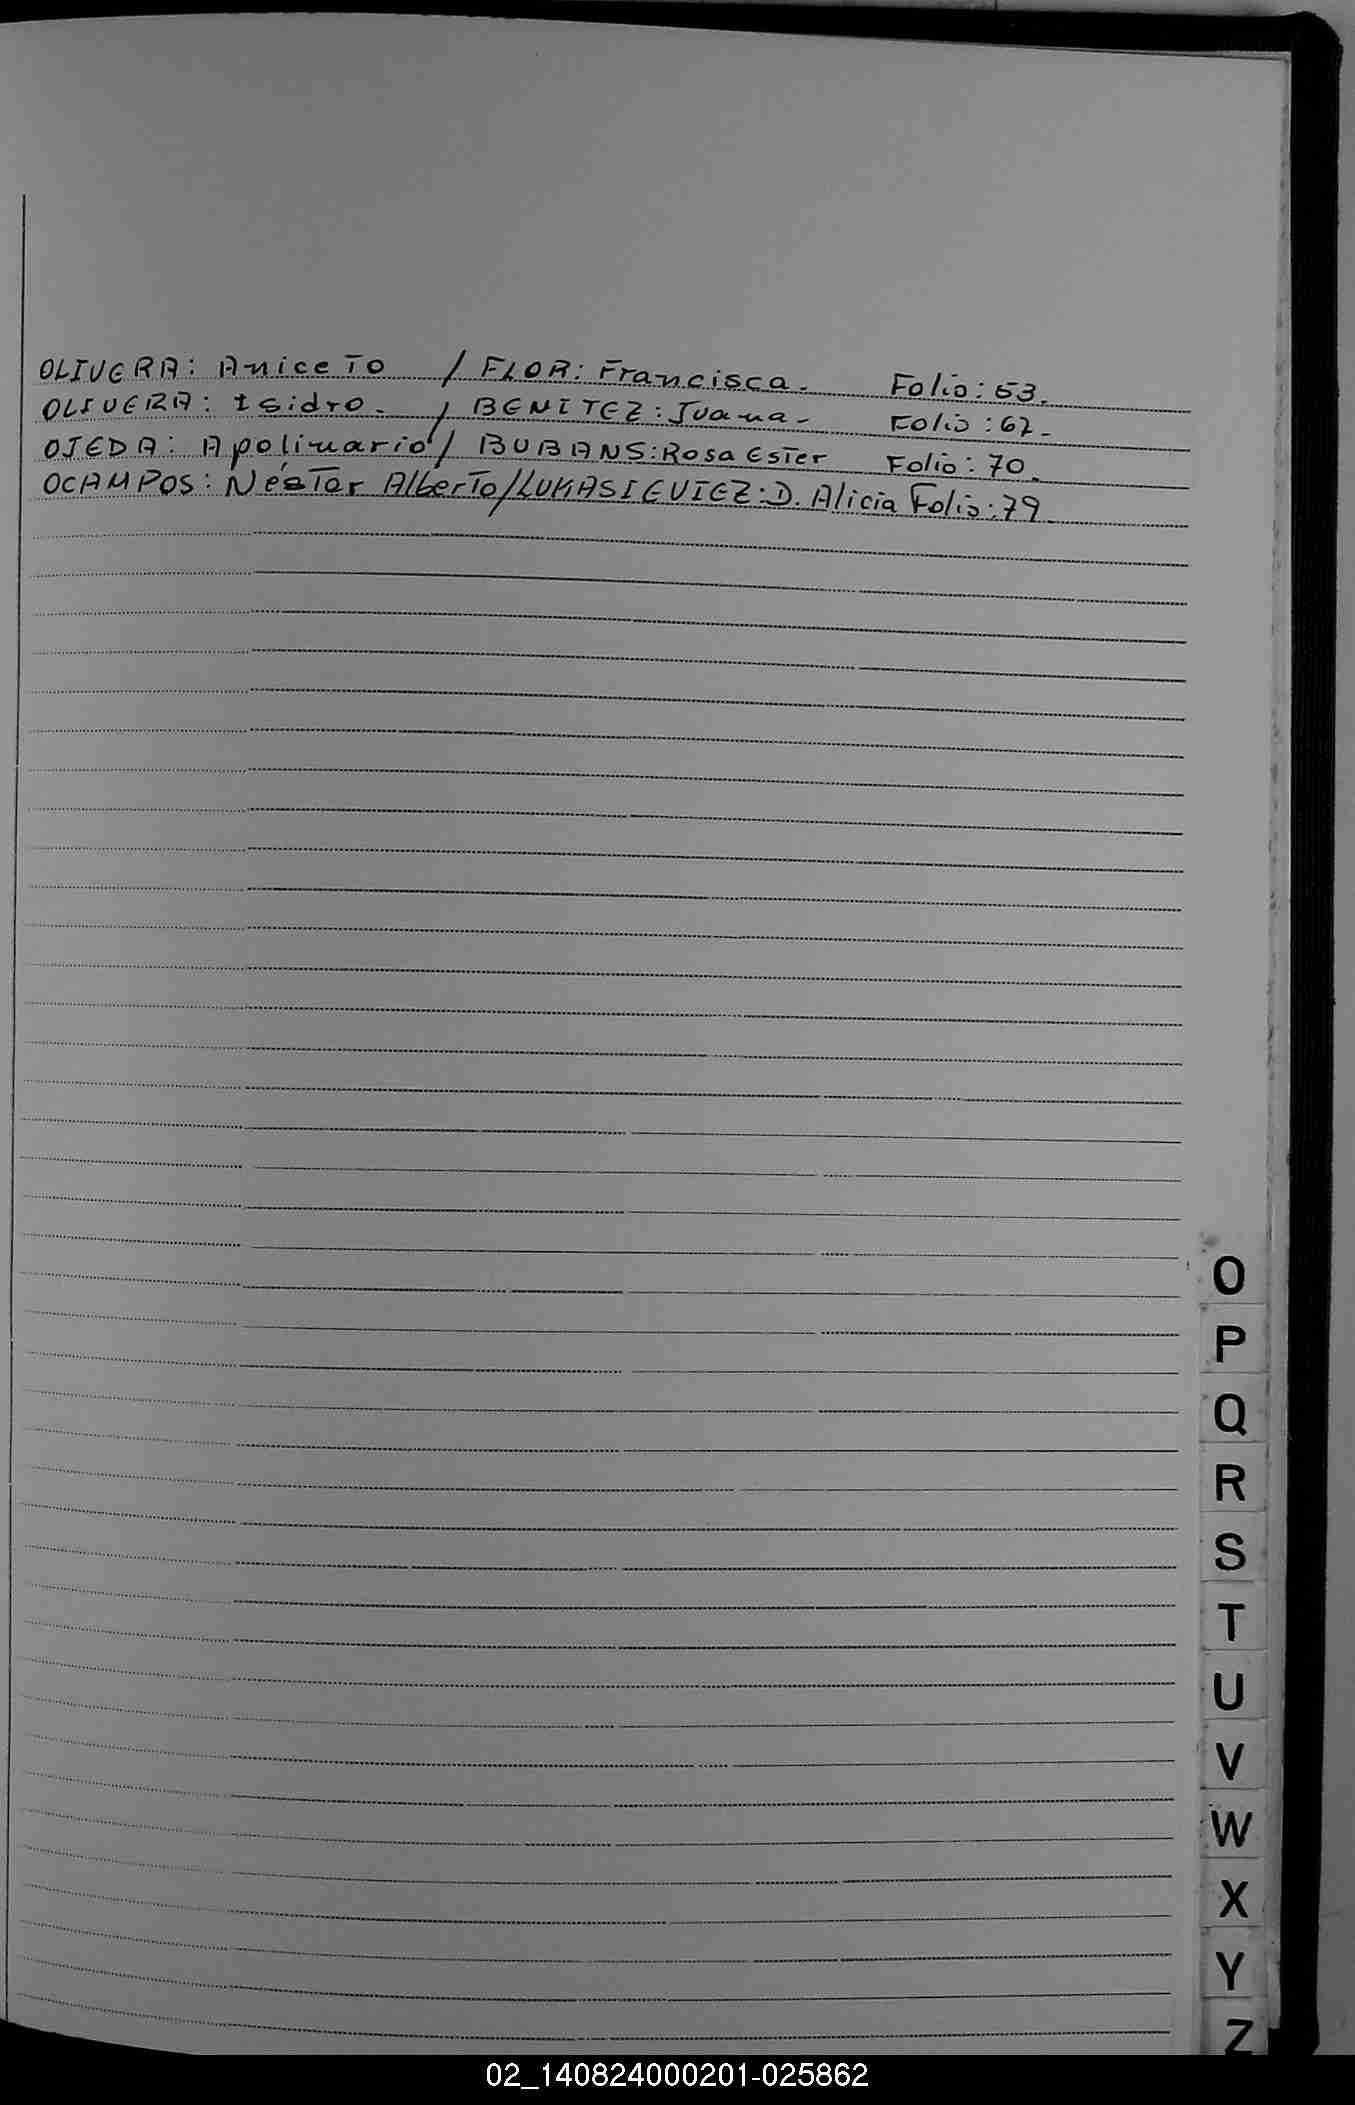 OLIVERA: Aniceto / FLOR: Francisca. Folio: 53.
OLIVERA: Isidro. / BENITEZ: Juana. Folio: 62.
OJEDA: Apolinario / BUBANS: Rosa Ester Folio: 70.
OCAMPOS: Néstor Alberto / LUKASIEVIEZ: D. Alicia Folio: 79.
O
P
Q
R
S
T
U
V
W
X
Y
Z
02_140824000201-025862